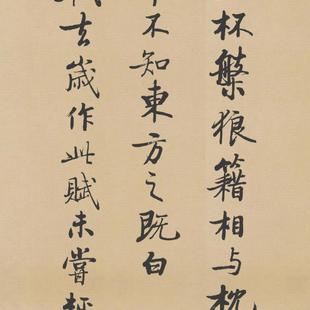 杯槃狼籍相与枕
不知東方之既白
去歲作此賦未嘗輕